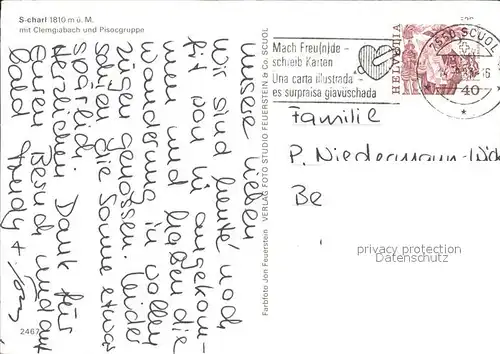 S-charl 1810 m ü. M.
mit Clemgiabach und Pisocgruppe
Unsere Lieben
Wir sind heute noch
hit von in angekom-
men und haben die
Wanderung in vollen
Zügen genossen. Leider
ist die Sonne etwas
spärlich.
Herzlichen Dank für
Euren Besuch und auf
bald
Trudy +
2467
Farbfoto Jon Feuerstein VERLAG FOTO STUDIO FEUERSTEIN & Co. SCUOL
Mach Freu(n)de –
schreib Karten
Una carta illustrada
es surpraisa giavüschada
7550 SCUOL
HELVETIA
40
Familie
P. Niedermann-
Be
privacy protection
Datenschutz